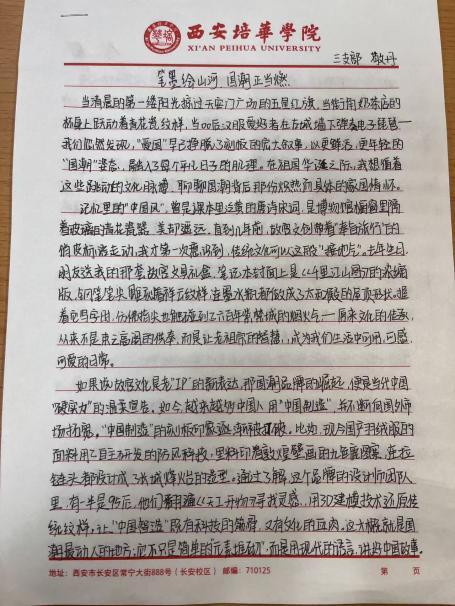 西安培華學院
XI'AN PEIHUA UNIVERSITY
三支部 敬丹
笔墨绘山河 国潮正当燃
当清晨的第一缕阳光掠过天安门广场的五星红旗，当街角奶茶店的
杯身上跃动着青花瓷纹样，当00后汉服爱好者在古城墙下弹奏电子琵琶—
我们忽然发现，“爱国”早已挣脱了刻板的宏大叙事，以更鲜活、更年轻的
“国潮”姿态，融入了每个平凡日子的肌理。在祖国华诞之际，我想循着
这些跳动的文化脉搏，聊聊国潮背后那份炽热而具体的家国情怀。
记忆里的“中国风”，曾是课本里泛黄的唐诗宋词，是博物馆橱窗里隔
着玻璃的青花瓷器，美却遥远。直到几年前，故宫文创带着“奉旨旅行”的
俏皮标语走红，我才第一次意识到，传统文化可以这般“接地气”。去年生日，
朋友送我的那套故宫文具礼盒，笔记本封面上是《千里江山图》的浓缩
版，钢笔笔尖雕琢着祥云纹样，连墨水瓶都做成了太和殿的屋顶形状。握
着它写字时，仿佛指尖也能触到了六百年紫禁城的烟火气——原来文化的传承，
从来不是束之高阁的供奉，而是让老祖宗的智慧，成为我们生活中可用、可感、
可爱的日常。
如果说故宫文化是老“IP”的新表达，那国潮品牌的崛起，便是当代中国
“硬实力”的温柔宣告。如今，越来越多中国人用“中国制造”，并不断向国外市
场拓展。“中国制造”的刻板印象逐渐被打破。比如，现今国产羽绒服的
面料用了自主研发的防风科技，里料印着敦煌壁画的九色鹿图案，连拉
链头都设计成了长城烽火台的造型。通过了解，这个品牌的设计师团队
里，有一半是95后，他们翻遍《天工开物》寻找灵感，用3D建模技术还原传
统纹样，让“中国智造”既有科技的筋骨，又有文化的血肉，这大概就是国
潮最动人的地方，它不只是简单的“元素堆砌”，而是用现代的语言，讲好中国故事。
地址：西安市长安区常宁大街888号（长安校区） 邮编：710125 第 页